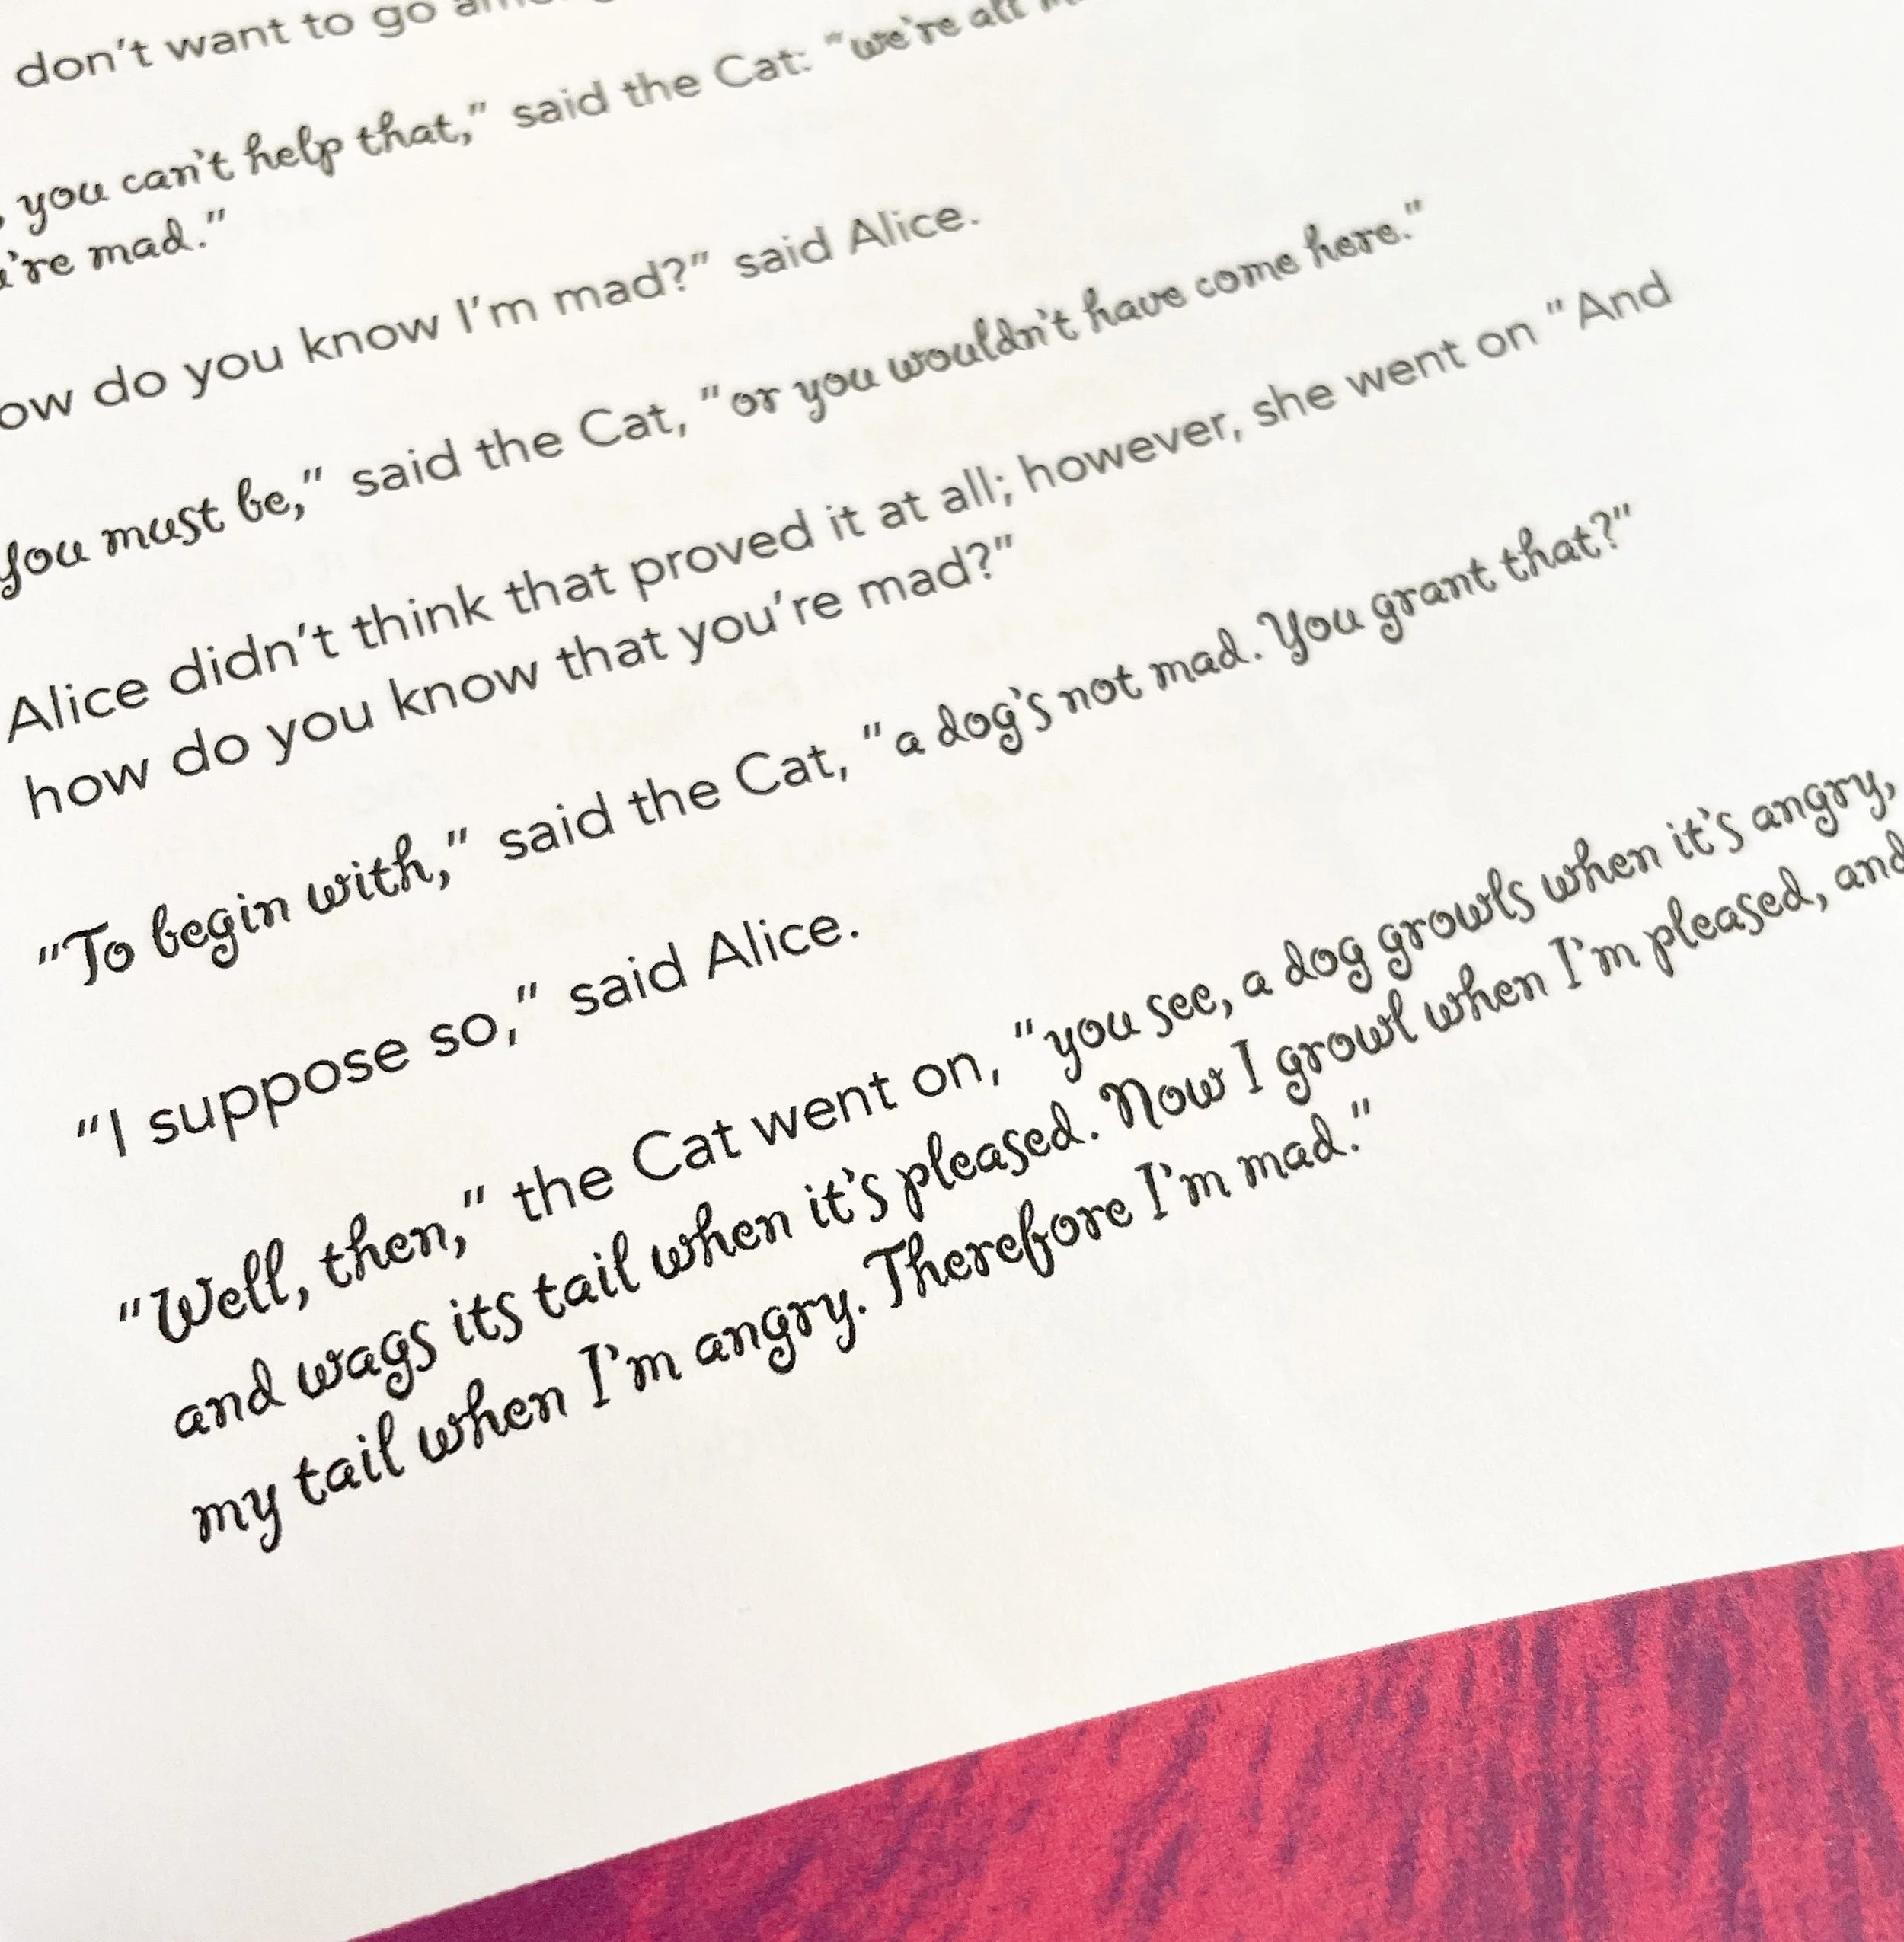 don't want to go
you can't help that," said the Cat: "we're all
're mad."
ow do you know I'm mad?" said Alice.
you must be," said the Cat, "or you wouldn't have come here."
Alice didn't think that proved it at all; however, she went on "And
how do you know that you're mad?"
"To begin with," said the Cat, "a dog's not mad. You grant that?"
"I suppose so," said Alice.
"Well, then," the Cat went on, "you see, a dog growls when it's angry,
and wags its tail when it's pleased. Now I growl when I'm pleased, and
my tail when I'm angry. Therefore I'm mad."